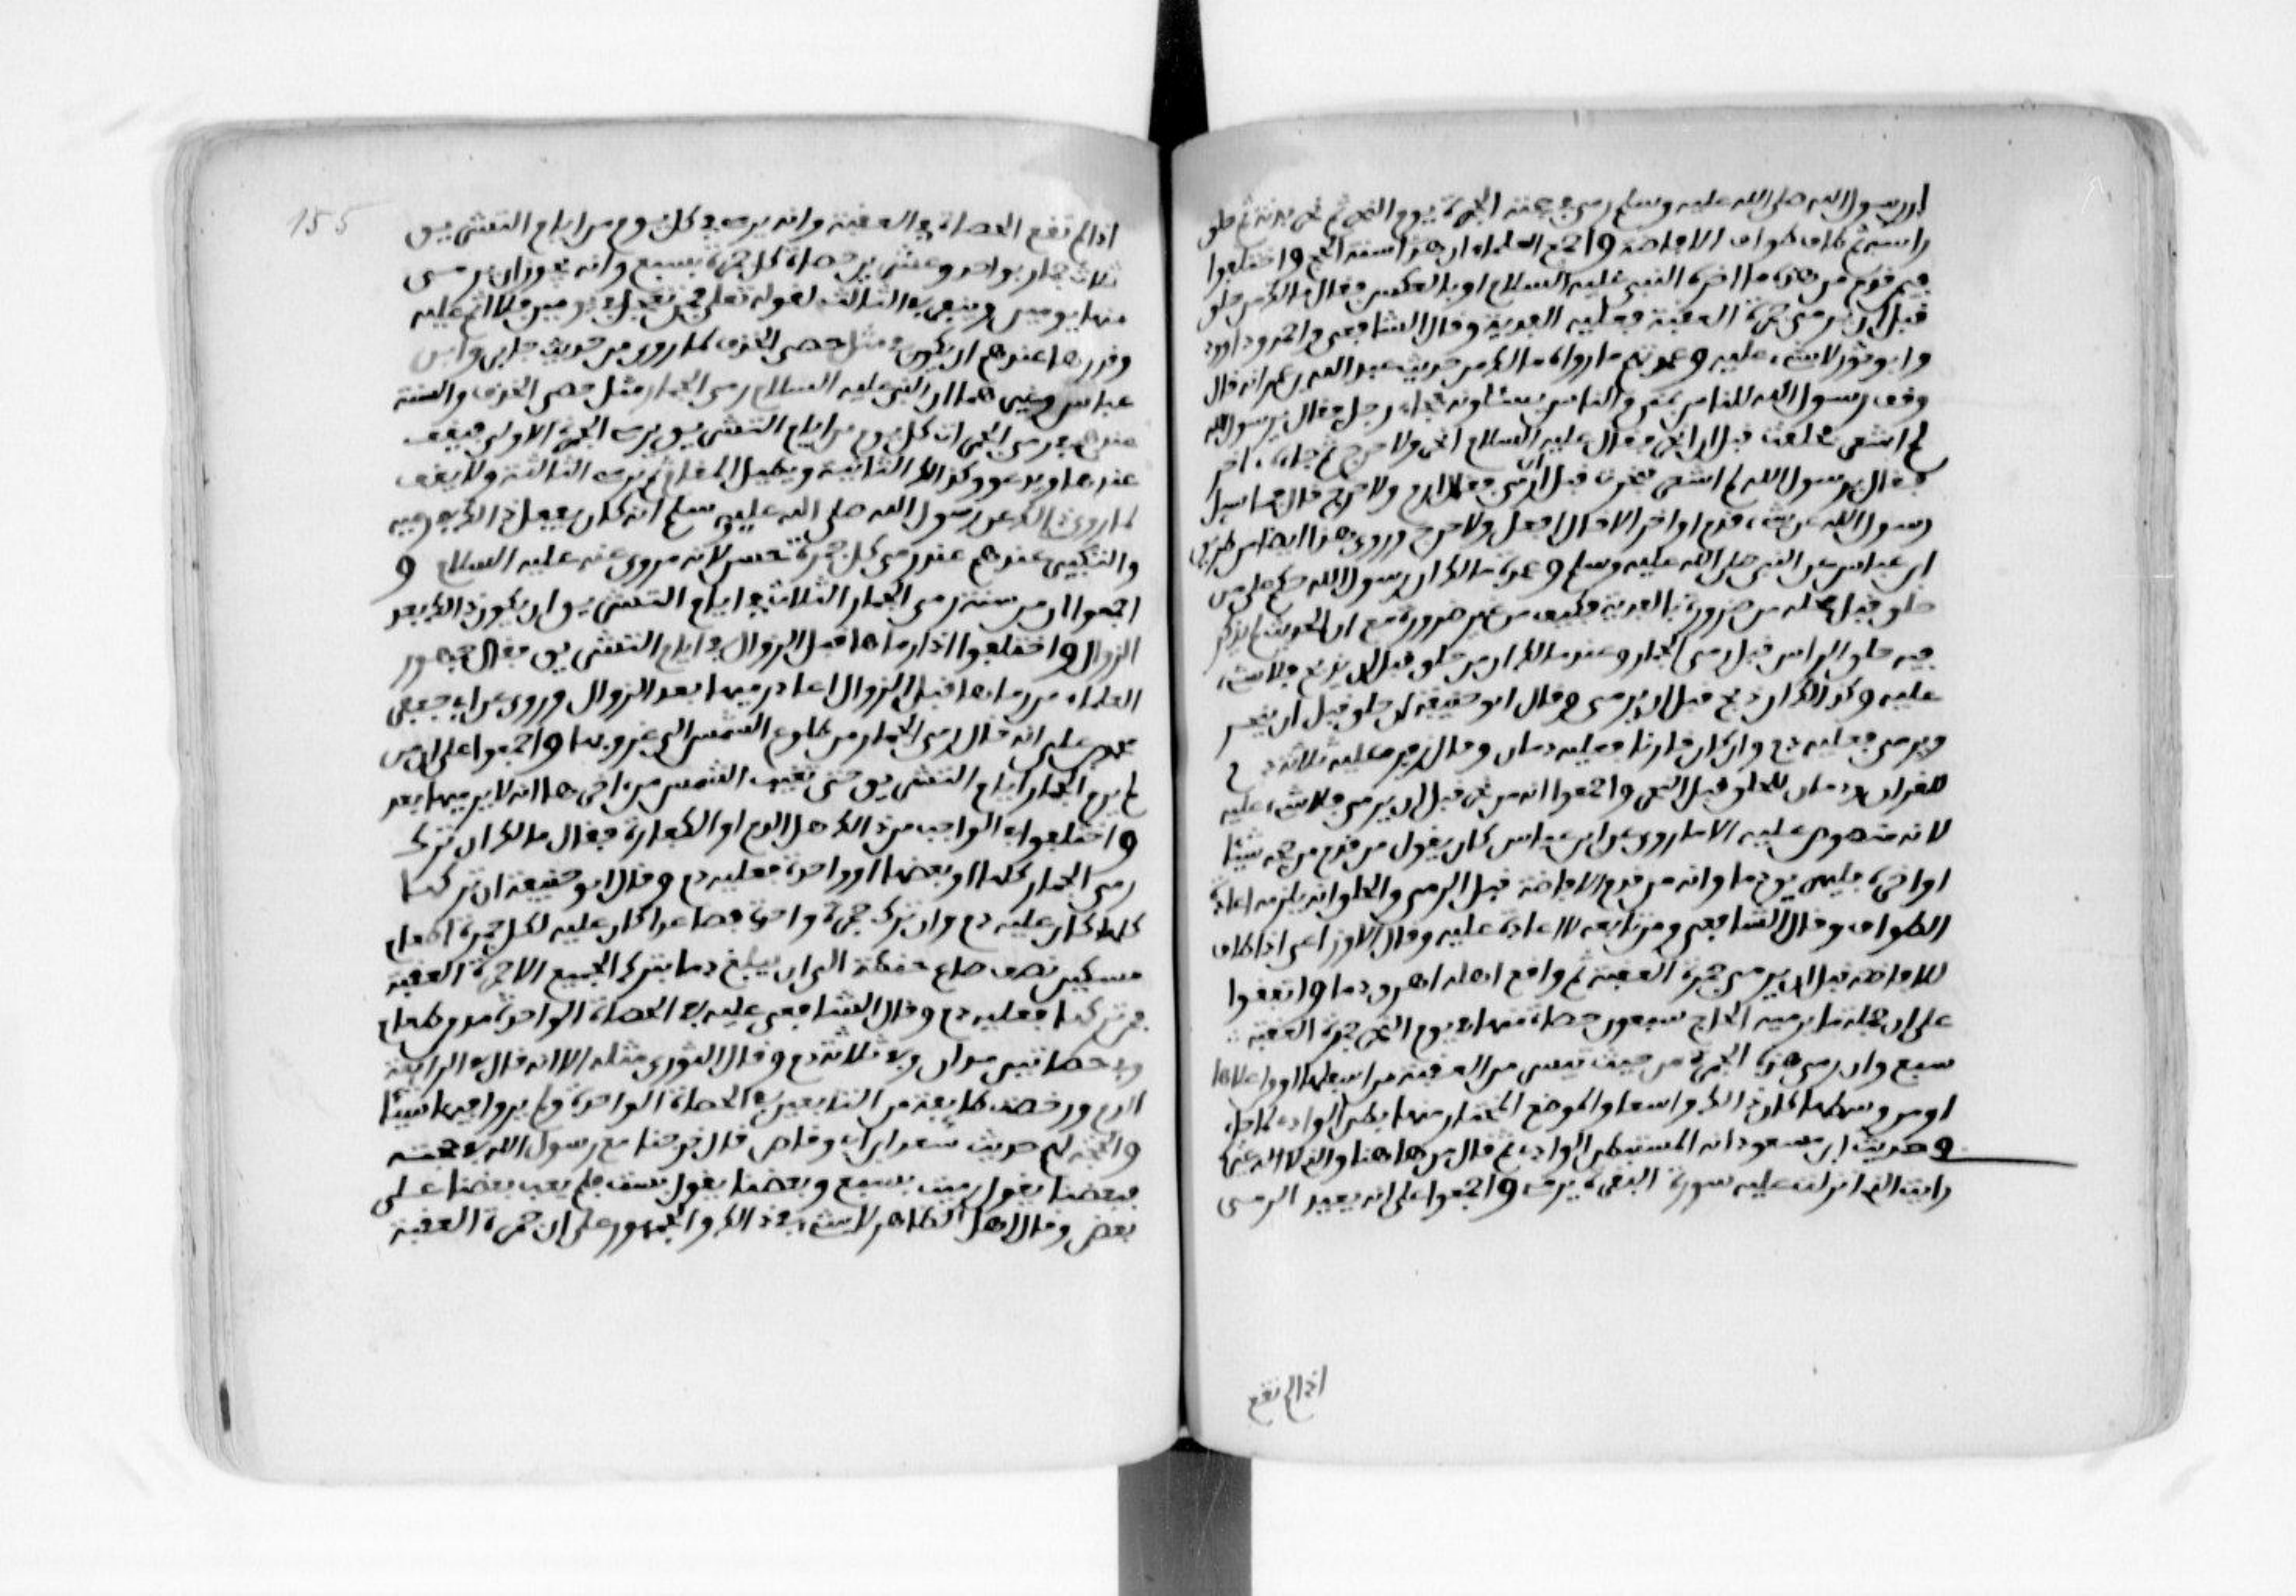 ان رسول الله صلى الله عليه وسلم رمى في حجته الجمرة يوم النحر ثم نحر بدنه ثم حلق
راسه ثم طاف طواف الافاضة واجمع العلماء ان هذا سنة الحج واختلفوا
فيمن قدم من هذه ما اخره النبي عليه السلام او بالعكس فقال مالك من حلق
قبل ان يرمي جمرة العقبة فعليه الفدية وقال الشافعي واحمد وداوود
وابو ثور لا شيء عليه وعمدتهم ما رواه مالك من حديث عبد الله بن عمر انه قال
وقف رسول الله للناس بمنى والناس يسئلونه فجاءه رجل فقال يرسول الله
لم اشعر فحلقت قبل ان انحر فقال عليه السلام انحر ولا حرج ثم جاءه اخر
فقال يرسول الله لم اشعر فنحرت قبل ان ارمي فقال ارم ولا حرج قال فما سئل
رسول الله عن شيء قدم او اخر الا قال افعل ولا حرج وروي هذا ايضا من طريق
ابن عباس عن النبي صلى الله عليه وسلم وعمدة مالك ان رسول الله حكم على من
حلق قبل محله من ضرورة بالفدية فكيف من غير ضرورة مع ان الحديث لم يذكر
فيه حلق الراس قبل رمي الجمار وعند مالك ان من حلق قبل ان يذبح فلا شيء
عليه وكذالك ان ذبح قبل ان يرمي وقال ابو حنيفة ان حلق قبل ان ينحر
ويرمي فعليه دم وان كان قارنا فعليه دمان وقال زفر عليه ثلاثة د م
للقران ودمان للحلق قبل النحر واجمعوا انه من نحر قبل ان يرمي فلا شيء عليه
لانه منصوص عليه الا ما روي عن ابن عباس كان يقول من قدم من حجه شيئا
او اخره فليهرق دما وانه من قدم الافاضة قبل الرمي والحلق انه يلزمه اعادة
الطواف وقال الشافعي ومن تابعه لا اعادة عليه وقال الاوزاعي اذا طاف
للافاضة قبل ان يرمي جمرة العقبة ثم واقع اهله اهرق دما واتفقوا
على ان جملة ما يرميه الحاج سبعون حصاة منها في يوم النحر جمرة العقبة
سبع وان رمي هذه الجمرة من حيث تيسر من العقبة من اسفلها او من اعلاها
او من وسطها كان ذالك واسعا والموضع المختار منها بطن الوادي لما جاء
وحديث ابن مسعود انه استبطن الوادي ثم قال من هاهنا والذي لا اله غيره
رايت الذي انزلت عليه سورة البقرة يرمي واجمعوا على انه يعيد الرمي
اذا لم تقع
155
اذا لم تقع الحصاة في العقبة وانه يرمي في كل يوم من ايام التشريق
ثلاث جمار بواحد وعشرين حصاة كل جمرة بسبع وانه يجوز ان يرمي
منها يومين وينفر في الثالث لقوله تعلى فمن تعجل في يومين فلا اثم عليه
وقدرها عندهم ان يكون في مثل حصى الخذف لما روي من حديث جابر وابن
عباس وغيرهما ان النبي عليه السلام رمى الجمار مثل حصى الخذف والسنة
عندهم في رمي الجمرات كل يوم من ايام التشريق يرمي الجمرة الاولى فيقف
عندها ويدعو وكذالك الثانية ويطيل المقام ثم يرمي الثالثة ولا يقف
لما روي ذالك عن رسول الله صلى الله عليه وسلم انه كان يفعل ذالك في رميه
والتكبير عندهم عند رمي كل جمرة حسن لانه مروي عنه عليه السلام و
اجمعوا ان من سنة رمي الجمار الثلاث في ايام التشريق ان يكون ذالك بعد
الزوال واختلفوا اذا رماها قبل الزوال في ايام التشريق فقال جمهور
العلماء من رماها قبل الزوال اعاد رميها بعد الزوال وروي عن ابي جعفر
محمد بن علي انه قال رمي الجمار من طلوع الشمس الى غروبها واجمعوا على ان من
لم يرم الجمار ايام التشريق حتى تغيب الشمس من اخرها انه لا يرميها بعد
واختلفوا في الواجب من ذالك هل الدم او الكفارة فقال مالك ان ترك
رمي الجمار كلها او بعضها او واحدة فعليه دم وقال ابو حنيفة ان تركها
كلها كان عليه دم وان ترك جمرة واحدة فصاعدا كان عليه لكل جمرة اطعام
مسكين نصف صاع حنطة الى ان يبلغ دما بترك الجميع الا جمرة العقبة
فمن تركها فعليه دم وقال الشافعي عليه في الحصاة الواحدة مد من طعام
وفي حصاتين مدان وفي ثلاثة دم وقال الثوري مثله الا انه قال في الرابعة
الدم ورخصت طايفة من التابعين في الحصاة الواحدة ولم يروا فيها شيئا
والحجة لهم حديث سعد ابن ابي وقاص قال خرجنا مع رسول الله في حجته
فبعضنا يقول رميت بسبع وبعضنا يقول بست فلم يعب بعضنا على
بعض وقال اهل الظاهر لا شيء في ذالك والجمهور على ان جمرة العقبة